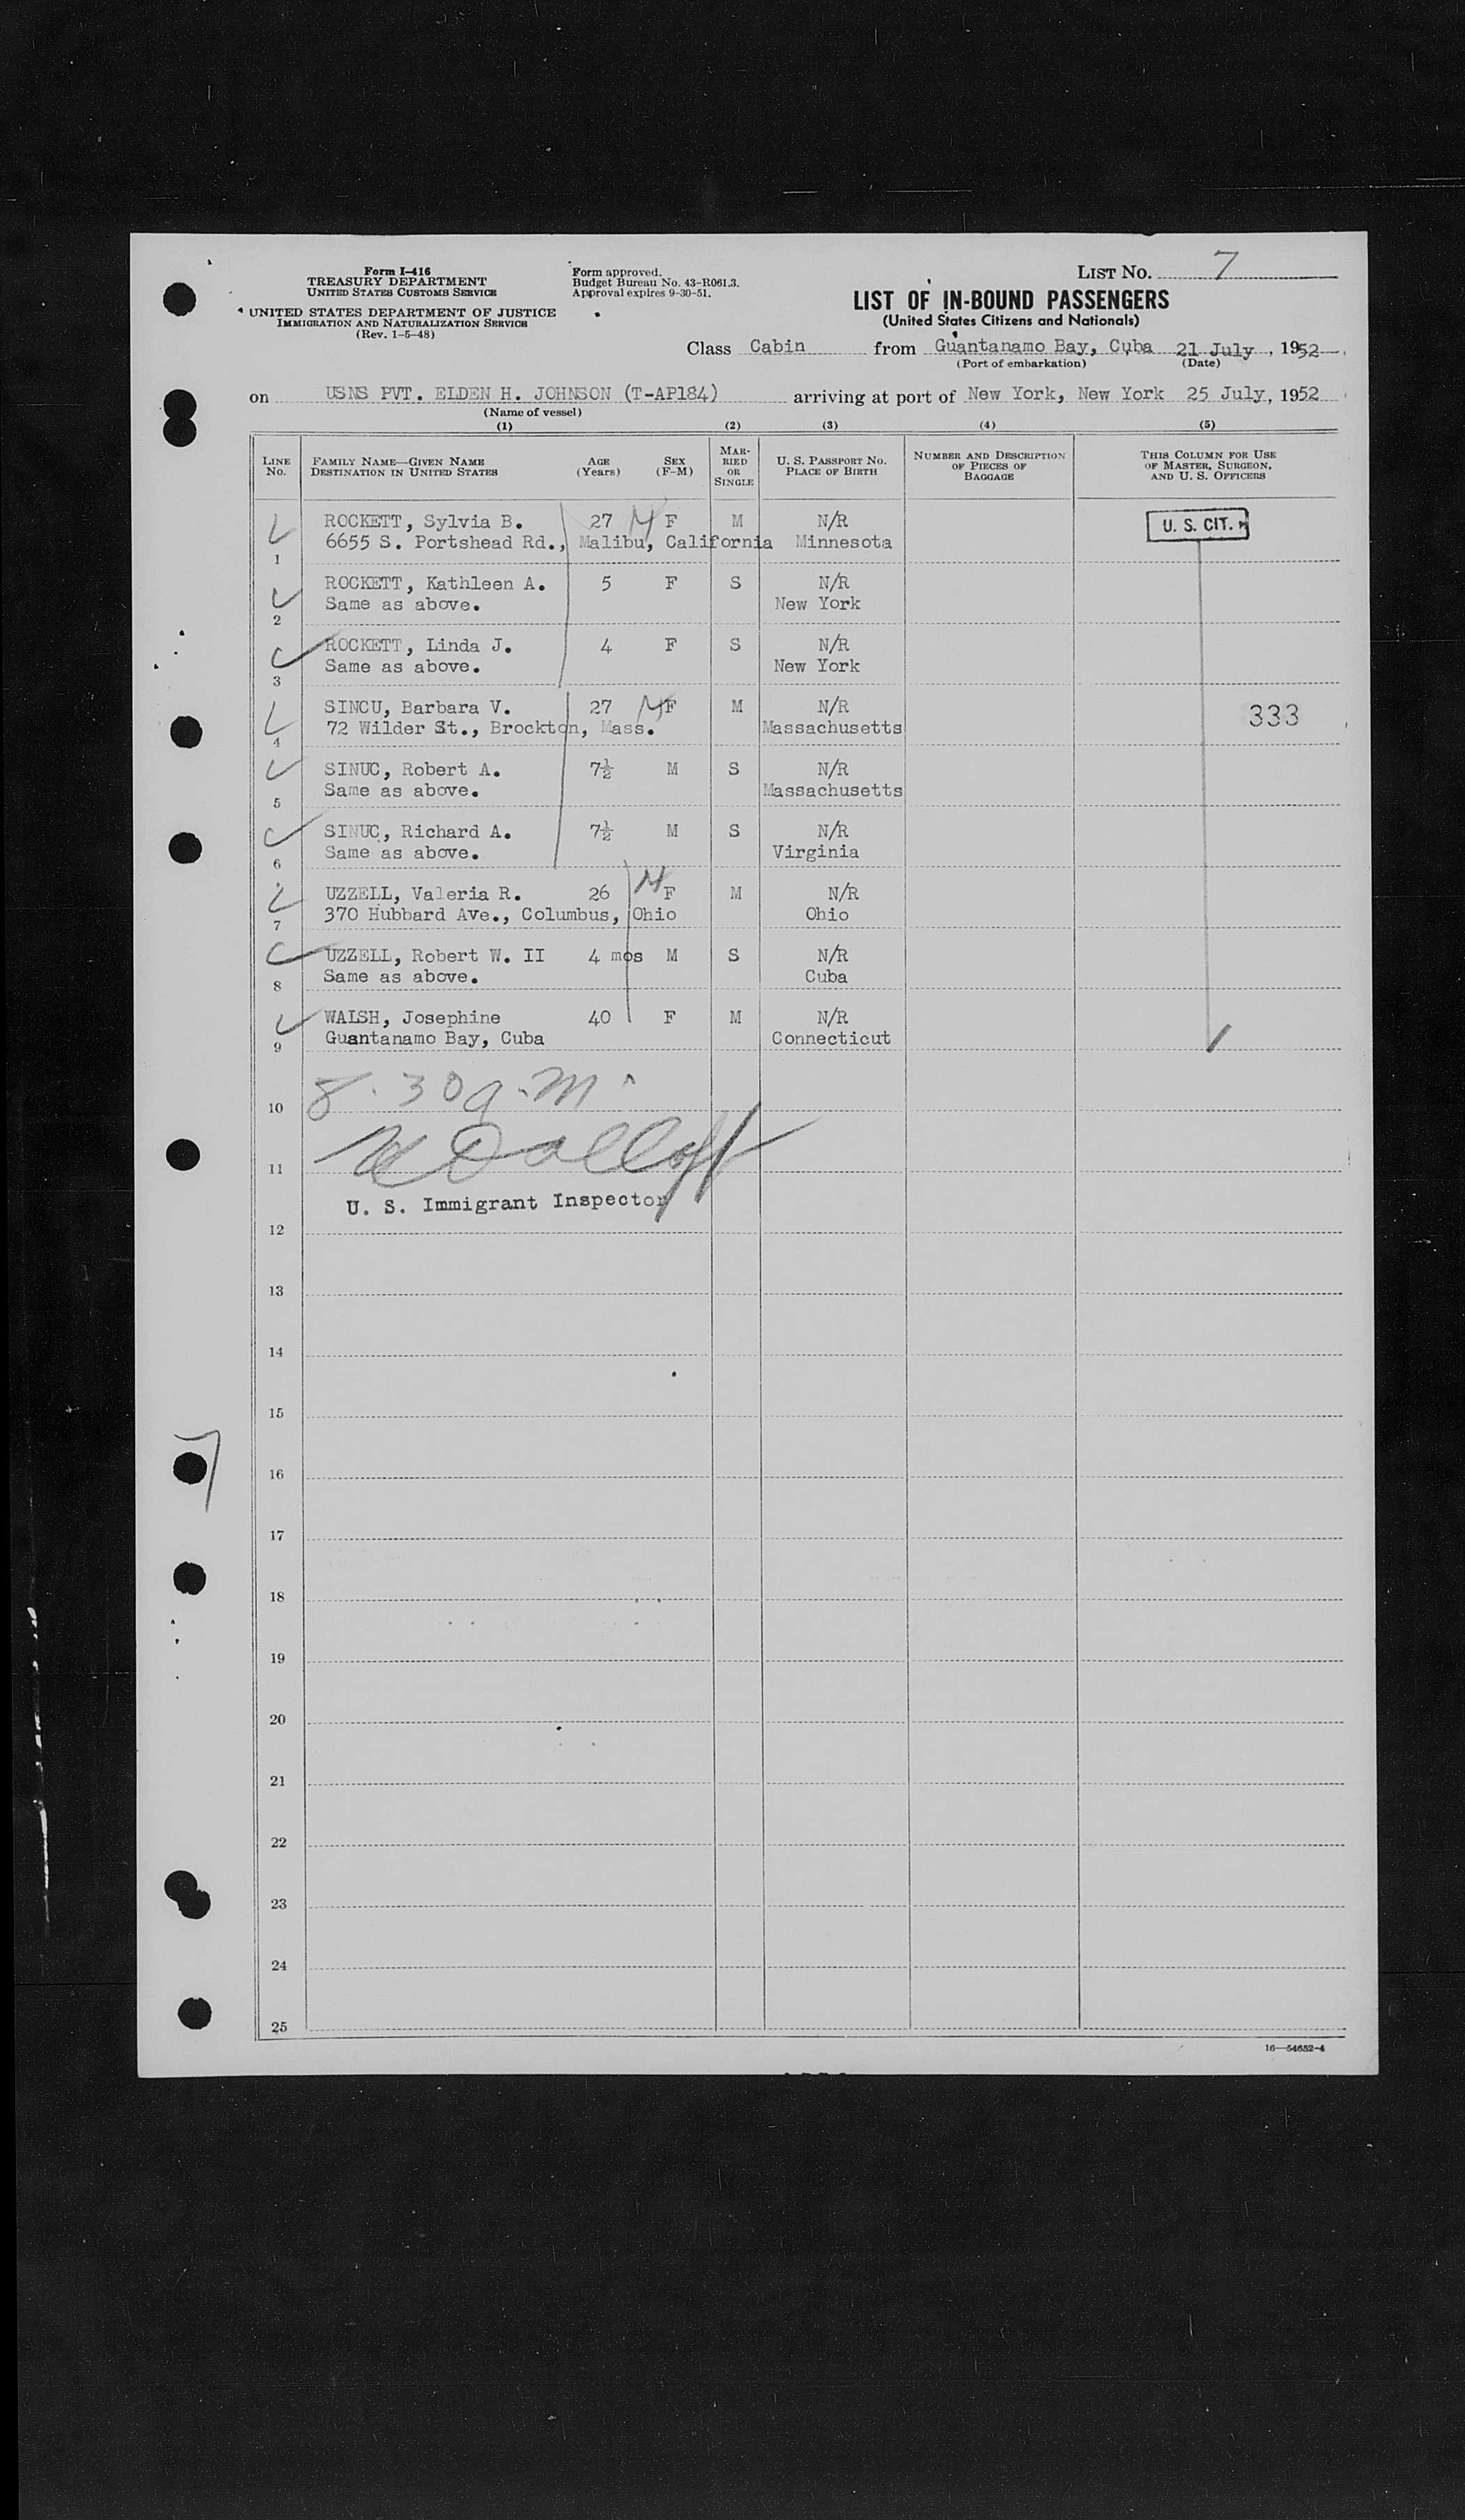 Form I-416
TREASURY DEPARTMENT
UNITED STATES CUSTOMS SERVICE
UNITED STATES DEPARTMENT OF JUSTICE
IMMIGRATION AND NATURALIZATION SERVICE
(Rev. 1-5-48)
Form approved.
Budget Bureau No. 43-R061.3.
Approval expires 9-30-51.
LIST NO. 7
LIST OF IN-BOUND PASSENGERS
(United States Citizens and Nationals)
Class Cabin from Guantanamo Bay, Cuba 21 July, 1952
(Port of embarkation) (Date)
on USNS PVT. ELDEN H. JOHNSON (T-AP184) arriving at port of New York, New York 25 July, 1952
(Name of vessel)
(1) (2) (3) (4) (5)
LINE NO. FAMILY NAME—GIVEN NAME DESTINATION IN UNITED STATES AGE (Years) SEX (F-M) MARRIED OR SINGLE U. S. PASSPORT NO. PLACE OF BIRTH NUMBER AND DESCRIPTION OF PIECES OF BAGGAGE THIS COLUMN FOR USE OF MASTER, SURGEON, AND U. S. OFFICERS
ROCKETT, Sylvia B. 27 M F M N/R U. S. CIT.
6655 S. Portshead Rd., Malibu, California Minnesota
1
ROCKETT, Kathleen A. 5 F S N/R
Same as above. New York
2
ROCKETT, Linda J. 4 F S N/R
Same as above. New York
3
SINCU, Barbara V. 27 M F M N/R 333
72 Wilder St., Brockton, Mass. Massachusetts
4
SINUC, Robert A. 7½ M S N/R
Same as above. Massachusetts
5
SINUC, Richard A. 7½ M S N/R
Same as above. Virginia
6
UZZELL, Valeria R. 26 M F M N/R
370 Hubbard Ave., Columbus, Ohio Ohio
7
UZZELL, Robert W. II 4 mos M S N/R
Same as above. Cuba
8
WALSH, Josephine 40 F M N/R
Guantanamo Bay, Cuba Connecticut
9
8.30 a.m.
10
11
U. S. Immigrant Inspector
12
13
14
15
7
16
17
18
19
20
21
22
23
24
25
16—54652-4